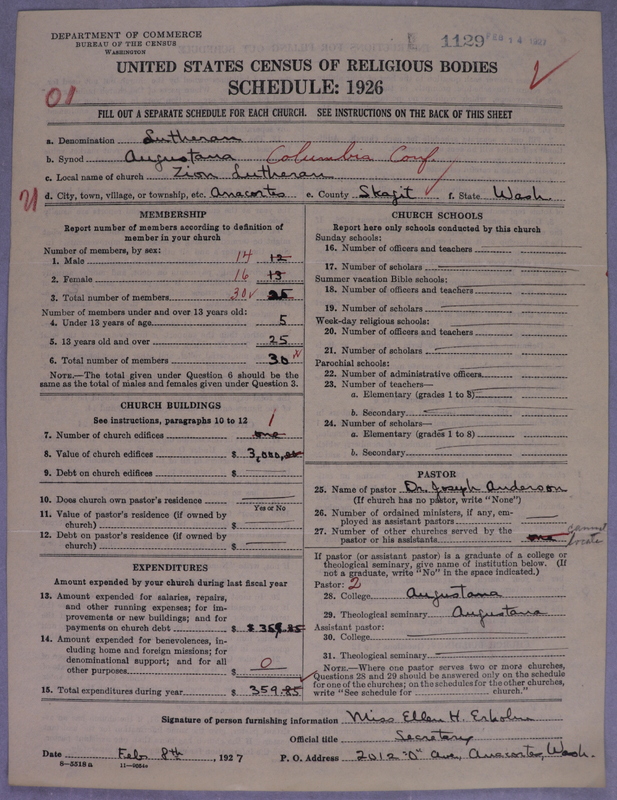 DEPARTMENT OF COMMERCE
BUREAU OF THE CENSUS
WASHINGTON
1129 FEB 14 1927
UNITED STATES CENSUS OF RELIGIOUS BODIES
SCHEDULE: 1926
01
FILL OUT A SEPARATE SCHEDULE FOR EACH CHURCH. SEE INSTRUCTIONS ON THE BACK OF THIS SHEET
a. Denomination Lutheran
b. Synod Augustana Columbia Conf.
c. Local name of church Zion Lutheran
d. City, town, village, or township, etc. Anacortes e. County Skagit f. State Wash.
MEMBERSHIP
Report number of members according to definition of
member in your church
Number of members, by sex:
1. Male 14 12
2. Female 16 13
3. Total number of members 30 25
Number of members under and over 13 years old:
4. Under 13 years of age 5
5. 13 years old and over 25
6. Total number of members 30
NOTE.—The total given under Question 6 should be the
same as the total of males and females given under Question 3.
CHURCH BUILDINGS
See instructions, paragraphs 10 to 12
7. Number of church edifices 1 one
8. Value of church edifices $ 3,000.00
9. Debt on church edifices $
10. Does church own pastor's residence
Yes or No
11. Value of pastor's residence (if owned by
church) $
12. Debt on pastor's residence (if owned by
church) $
EXPENDITURES
Amount expended by your church during last fiscal year
13. Amount expended for salaries, repairs,
and other running expenses; for im-
provements or new buildings; and for
payments on church debt $ 359.85
14. Amount expended for benevolences, in-
cluding home and foreign missions; for
denominational support; and for all
other purposes $ 0
15. Total expenditures during year $ 359.85
CHURCH SCHOOLS
Report here only schools conducted by this church
Sunday schools:
16. Number of officers and teachers
17. Number of scholars
Summer vacation Bible schools:
18. Number of officers and teachers
19. Number of scholars
Week-day religious schools:
20. Number of officers and teachers
21. Number of scholars
Parochial schools:
22. Number of administrative officers
23. Number of teachers—
a. Elementary (grades 1 to 8)
b. Secondary
24. Number of scholars—
a. Elementary (grades 1 to 8)
b. Secondary
PASTOR
25. Name of pastor Dr. Joseph Anderson
(If church has no pastor, write "None")
26. Number of ordained ministers, if any, em-
ployed as assistant pastors
27. Number of other churches served by the
pastor or his assistants one cannot locate
If pastor (or assistant pastor) is a graduate of a college or
theological seminary, give name of institution below. (If
not a graduate, write "No" in the space indicated.)
Pastor: 2
28. College Augustana
29. Theological seminary Augustana
Assistant pastor:
30. College
31. Theological seminary
NOTE.—Where one pastor serves two or more churches,
Questions 28 and 29 should be answered only on the schedule
for one of the churches; on the schedules for the other churches,
write "See schedule for church."
Signature of person furnishing information Miss Ellen H. Erholm
Official title Secretary
Date Feb. 8th, 1927 P. O. Address 2012 "O" Ave, Anacortes, Wash.
8-5518 a